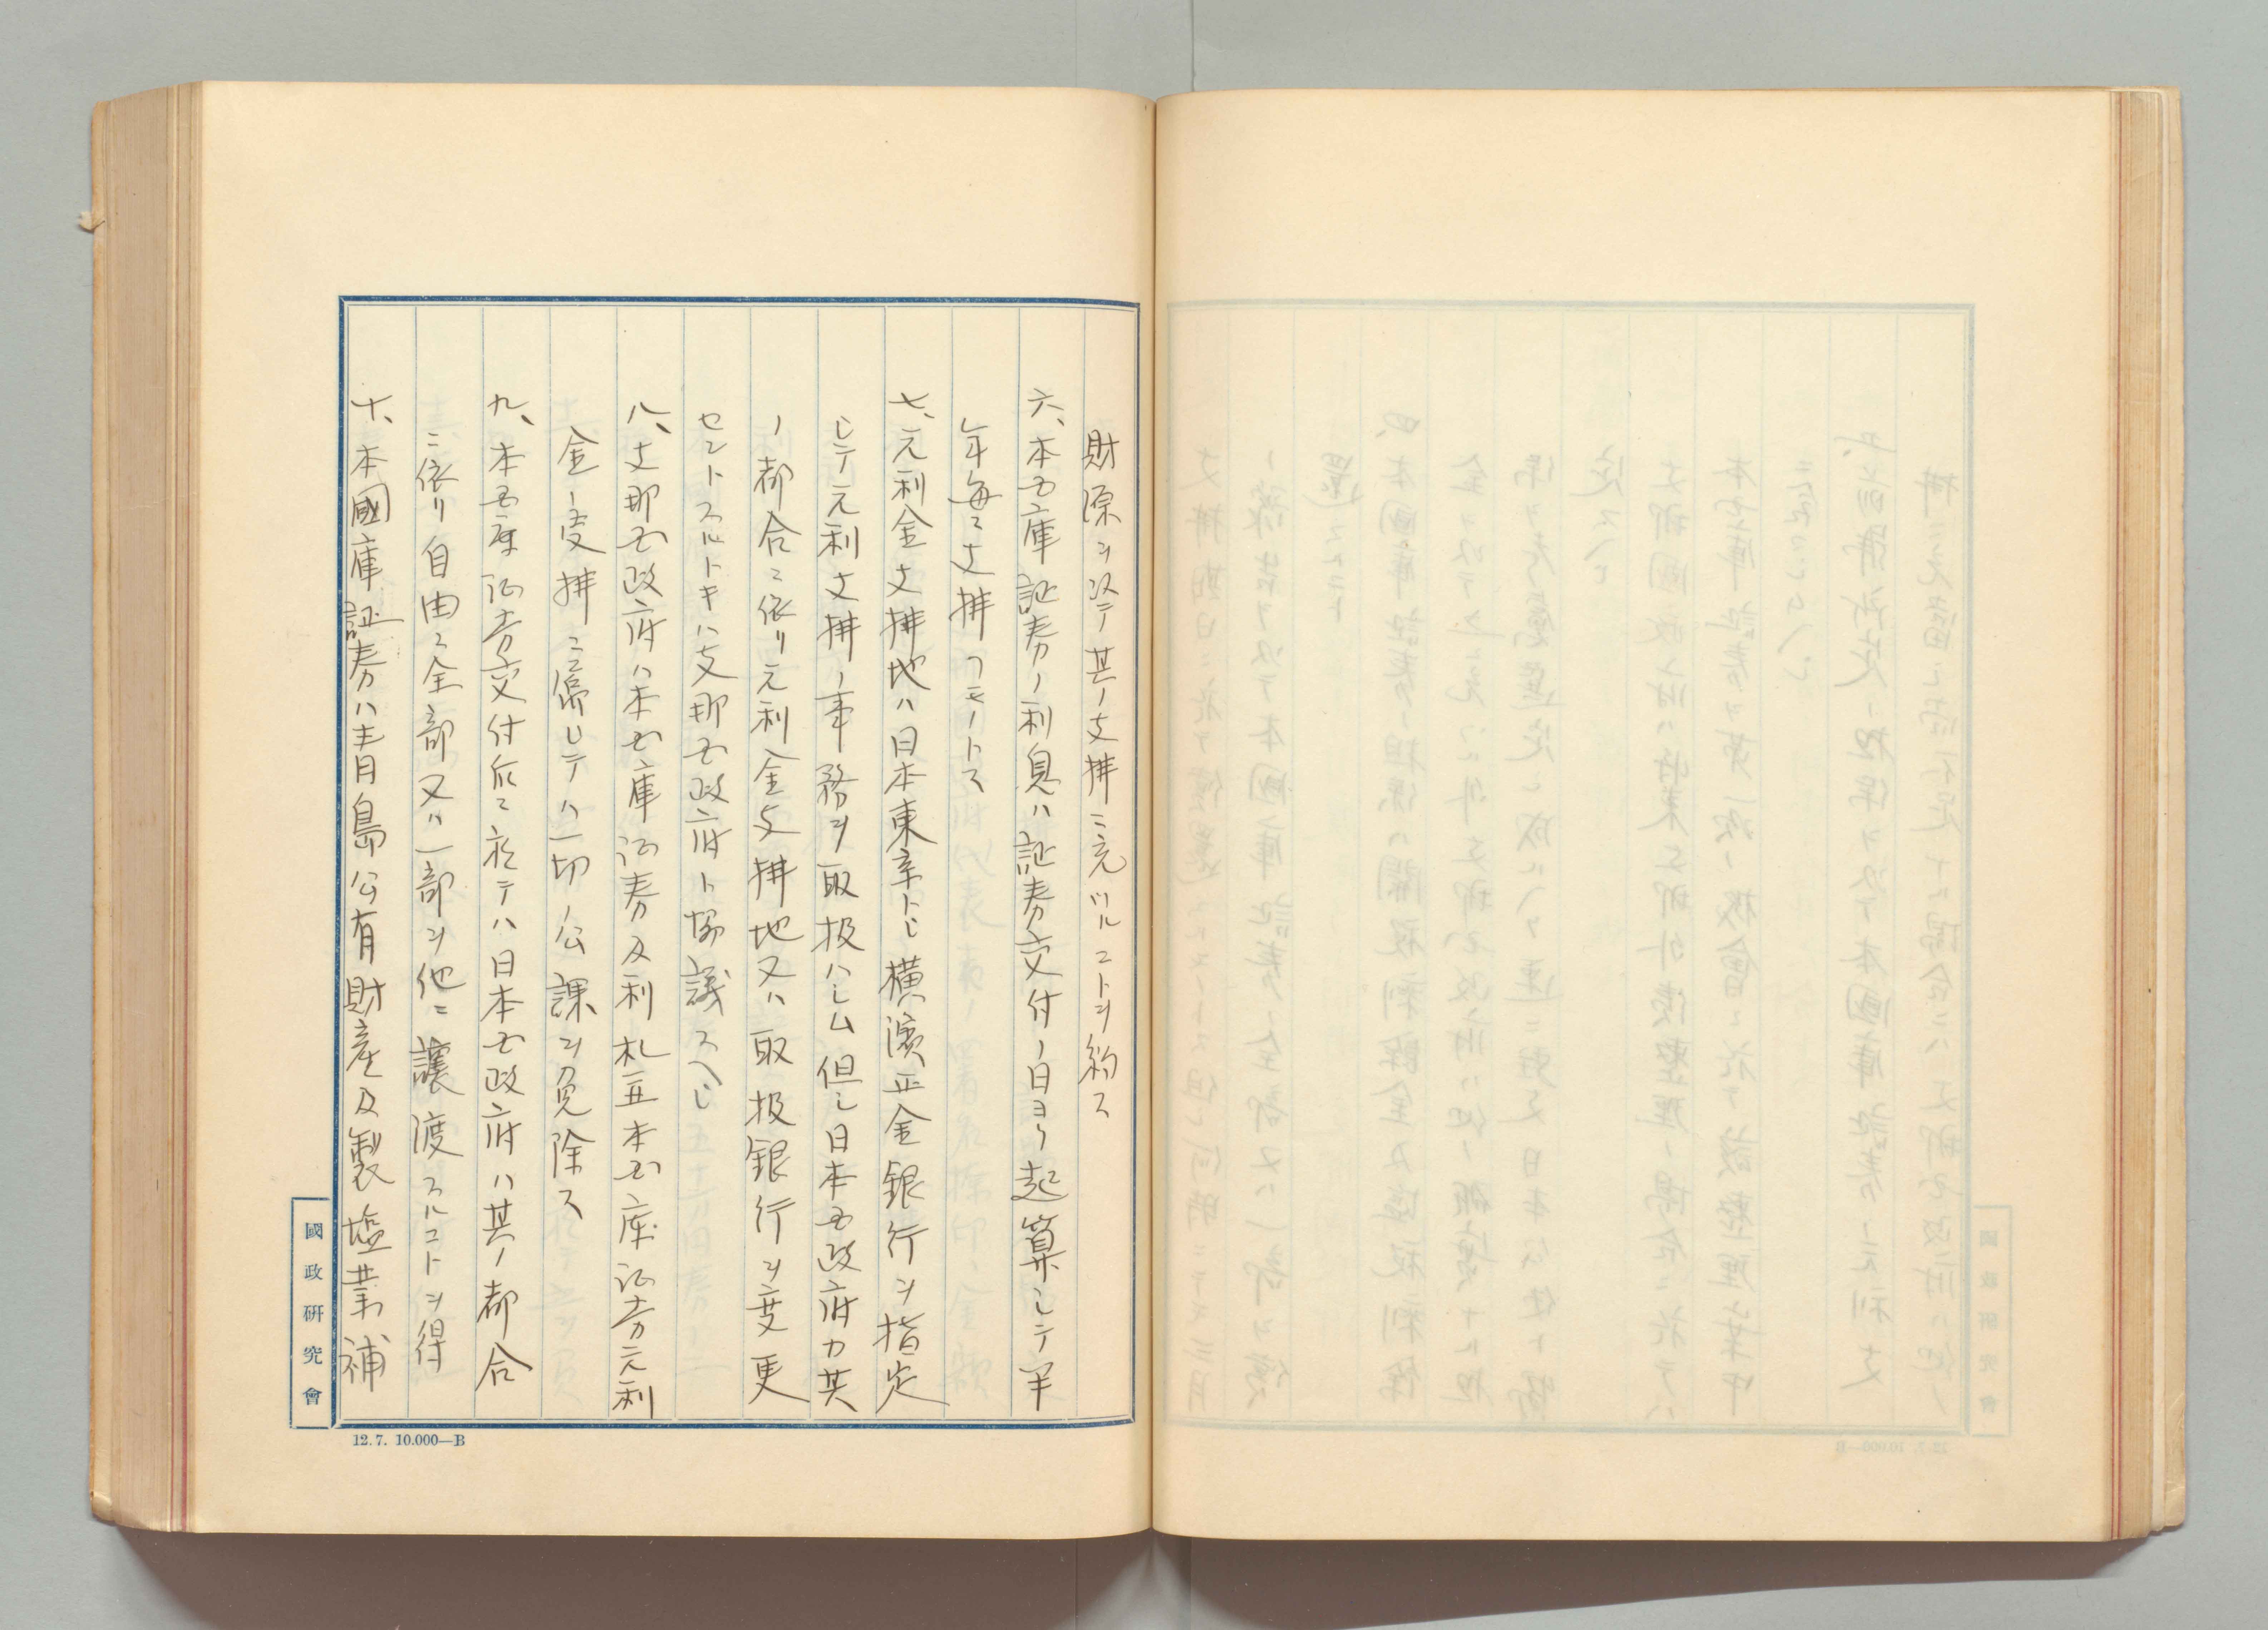 財源ヲ以テ其ノ支拂ニ充ツルコトヲ約ス
六、本国庫証券ノ利息ハ証券交付ノ日ヨリ起算シテ半
年毎ニ支拂フモノトス
七、元利金支拂地ハ日本東京トシ横濱正金銀行ヲ指定
シテ元利支拂ノ事務ヲ取扱ハシム但シ日本国政府カ其
ノ都合ニ依リ元利金支拂地又ハ取扱銀行ヲ変更
セントスルトキハ支那国政府ト協議スヘシ
八、支那国政府ハ本国庫証券及利札並本国庫証券元利
金ノ受拂ニ関シテハ一切ノ公課ヲ免除ス
九、本国庫証券交付后ニ於テハ日本国政府ハ其ノ都合
ニ依リ自由ニ全部又ハ一部ヲ他ニ讓渡スルコトヲ得
十、本國庫証券ハ青島公有財産及製塩業補
國政研究會
12.7. 10.000—B